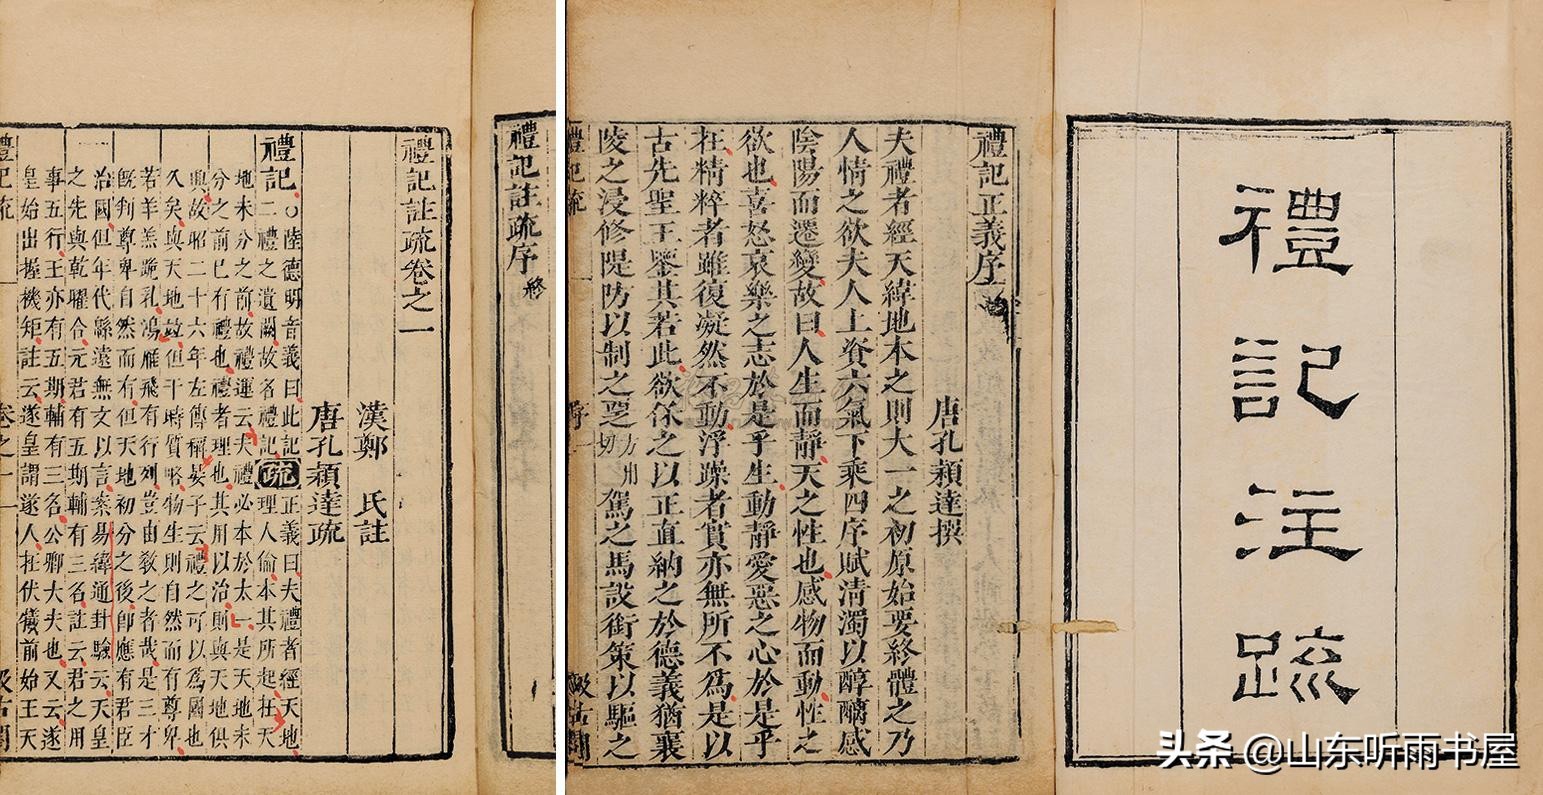 禮記注疏
禮記正義序
唐孔穎達撰
夫禮者經天緯地本之則大一之初原始要終體之乃
人情之欲夫人上資六氣下乘四序賦清濁以醇醨感
陰陽而遷變故曰人生而靜天之性也感物而動性之
欲也喜怒哀樂之志於是乎生動靜愛惡之心於是乎
在精粹者雖復凝然不動浮躁者實亦無所不為是以
古先聖王鑒其若此欲保之以正直納之於德義猶襄
陵之浸修隄防以制之覂方用切駕之馬設銜策以驅之
禮記疏 序 一 汲古閣
禮記註疏序終
禮記註疏卷之一
漢鄭 氏註
唐孔穎達疏
禮記○陸德明音義曰此記
二禮之遺闕故名禮記
疏正義曰夫禮者經天地
理人倫本其所起在天
地未分之前故禮運云夫禮必本於太一是天地未
分之前已有禮也禮者理也其用以治則與天地俱
興故昭二十六年左傳稱晏子云禮之可以為國也
久矣與天地並但于時質略物生則自然而有尊卑
若羊羔跪乳鴻雁飛有行列豈由教之者哉是三才
既判尊卑自然而有但天地初分之後即應有君臣
治國但年代縣遠無文以言案易緯通卦驗云天皇
之先與乾曜合元君有五期輔有三名註云君之用
事五行王亦有五期輔有三名公卿大夫也又云遂
皇始出握機矩註云遂皇謂遂人在伏犧前始王天
禮記疏 卷之一 一 汲古閣
头条 @山东听雨书屋